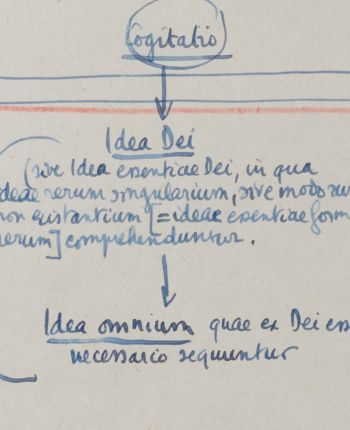 Cogitatio
Idea Dei
(sive Idea essentiae Dei, in qua
ideae rerum singularium, sive modorum
non existantium [=ideae essentiae form
rerum] comprehenduntur.
Idea omnium quae ex Dei es
necessario sequuntur